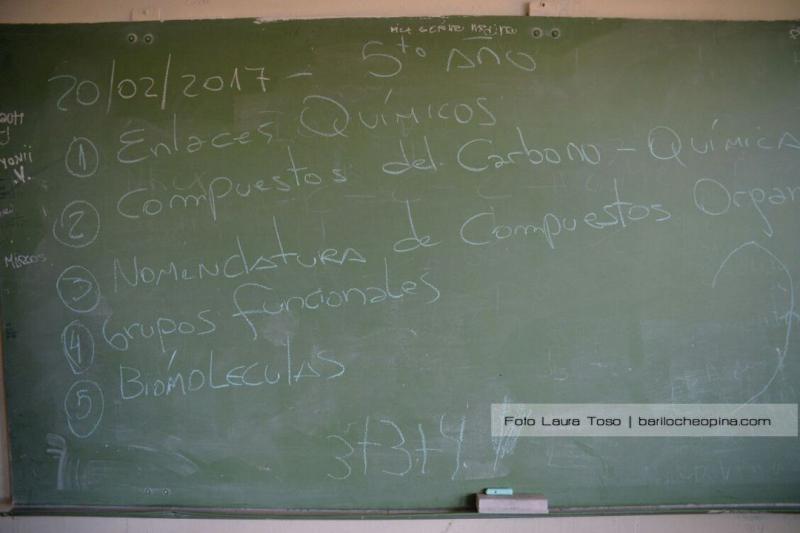 20/02/2017 - 5to AÑO
① Enlaces Químicos
② Compuestos del Carbono - Química
③ Nomenclatura de Compuestos Organ
④ Grupos Funcionales
⑤ Biomoleculas
3+3+4
Foto Laura Toso | barilocheopina.com
Marcos